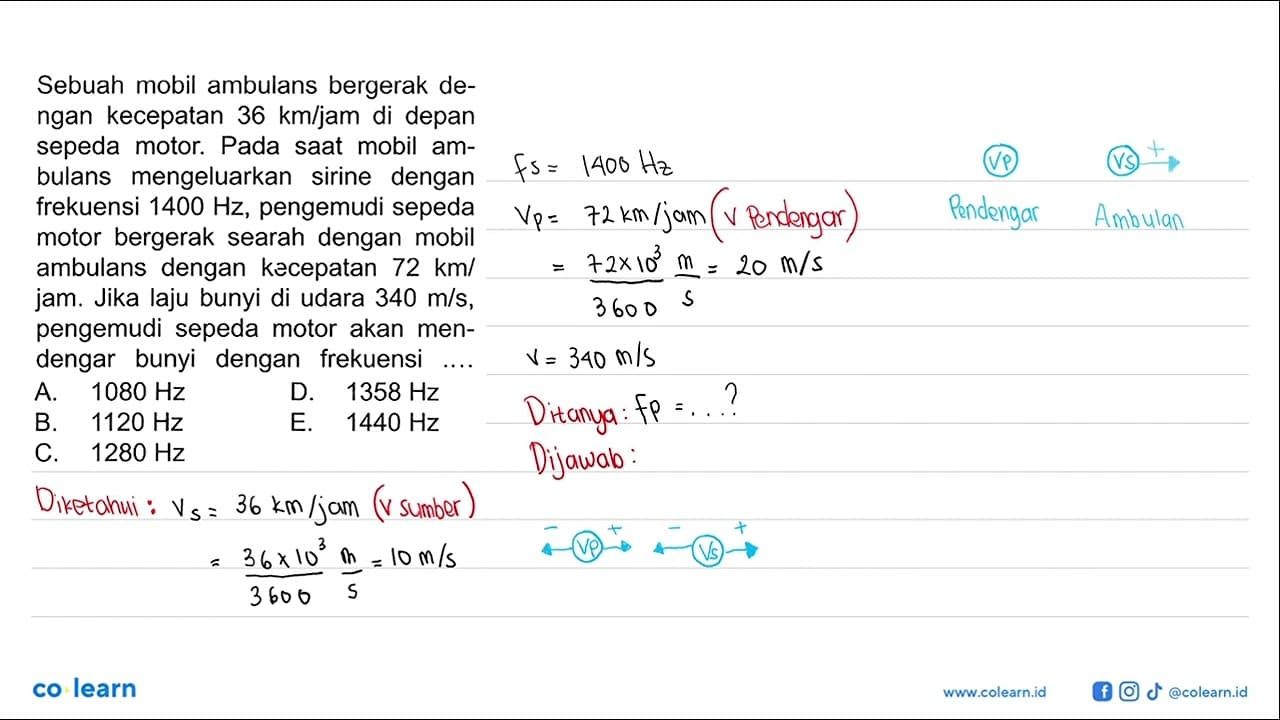 Sebuah mobil ambulans bergerak de-
ngan kecepatan 36 km/jam di depan
sepeda motor. Pada saat mobil am-
bulans mengeluarkan sirine dengan
frekuensi 1400 Hz, pengemudi sepeda
motor bergerak searah dengan mobil
ambulans dengan kəcepatan 72 km/
jam. Jika laju bunyi di udara 340 m/s,
pengemudi sepeda motor akan men-
dengar bunyi dengan frekuensi ....
A. 1080 Hz D. 1358 Hz
B. 1120 Hz E. 1440 Hz
C. 1280 Hz
Diketahui : Vs = 36 km/jam (v sumber)
= 36 x 10³ / 3600 m/s = 10 m/s
fs = 1400 Hz
Vp = 72 km/jam (v Pendengar)
= 72 x 10³ / 3600 m/s = 20 m/s
v = 340 m/s
Ditanya : fp = ...?
Dijawab :
- Vp + - Vs +
Vp Vs +
Pendengar Ambulan
co learn
www.colearn.id @colearn.id